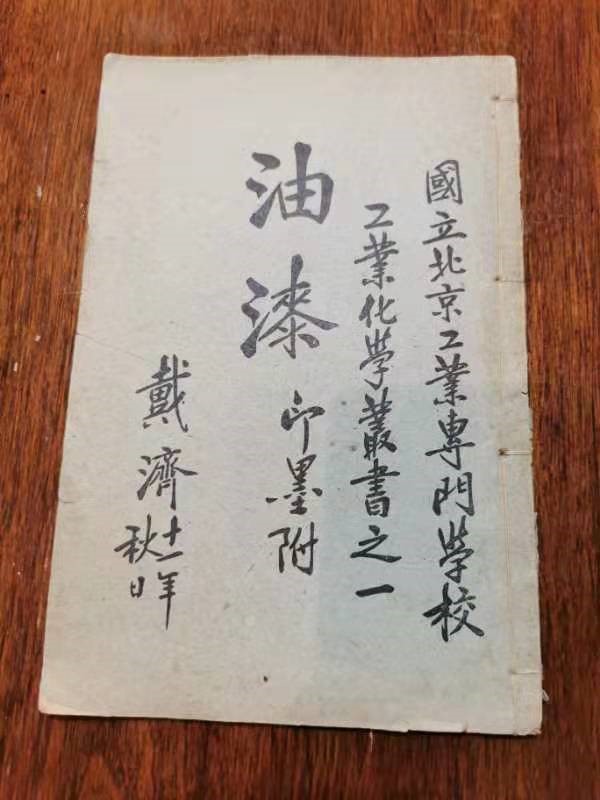 國立北京工业專門學校
工業化學叢書之一
油漆印墨附
戴濟十一年
秋日